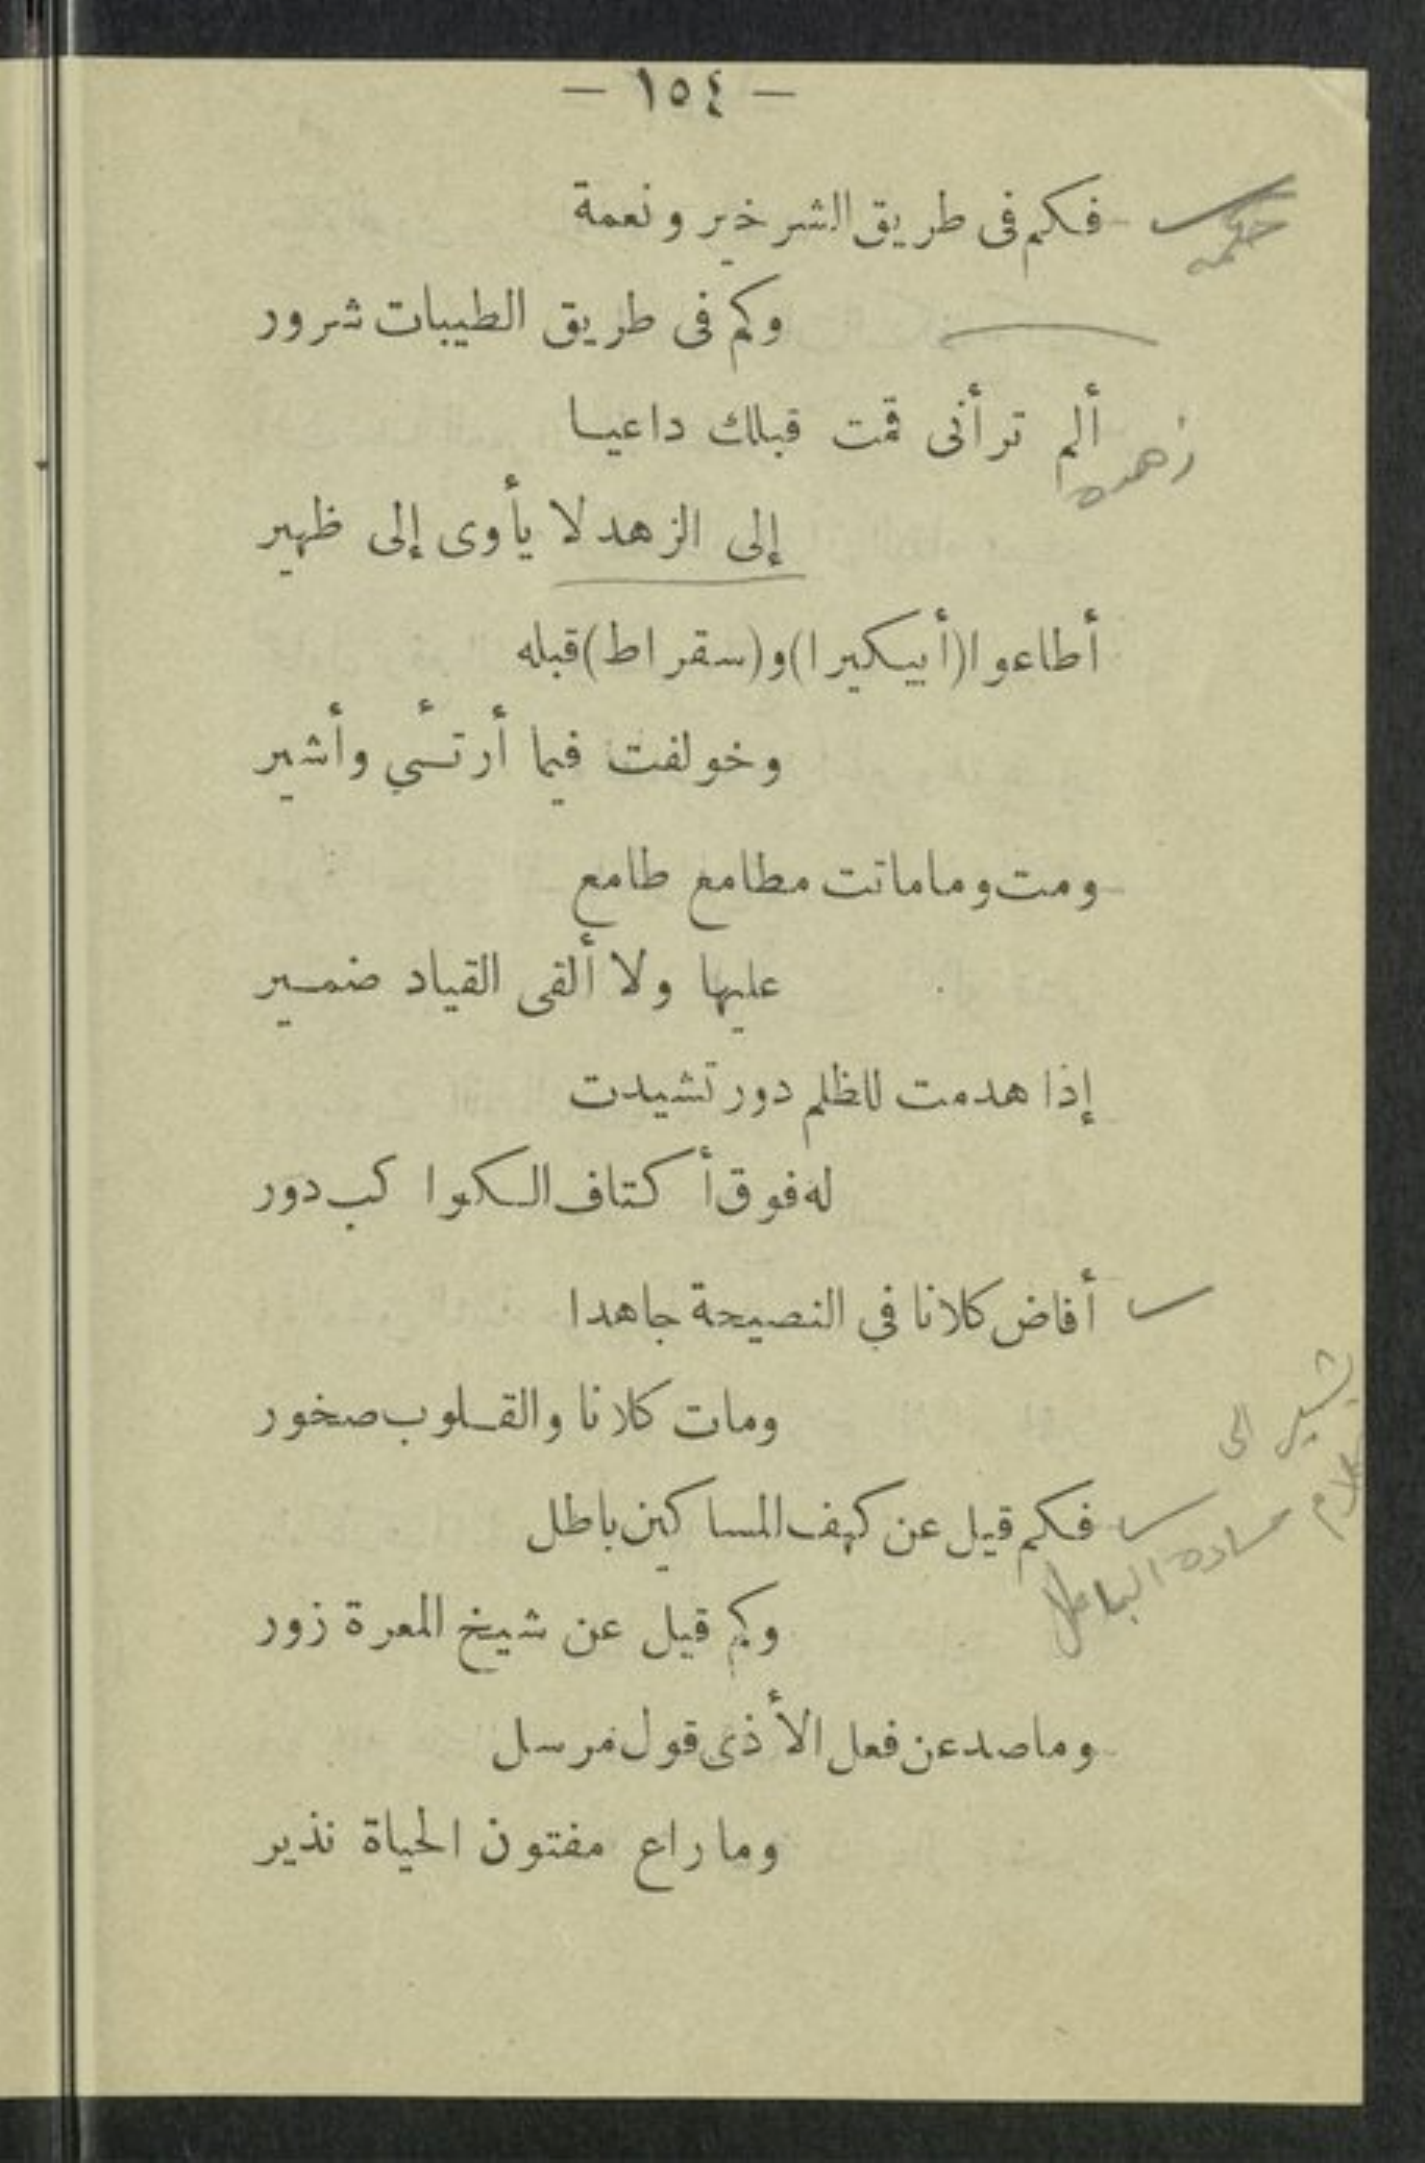 — ١٥٤ —
حكمه
فكم فى طريق الشر خير ونعمة
وكم فى طريق الطيبات شرور
زهده
ألم تر أنى قمت قبلك داعيا
إلى الزهد لا يأوى إلى ظهير
أطاعوا (أبيكيرا) و (سقراط) قبله
وخولفت فيما أرتئي وأشير
ومت وما ماتت مطامع طامع
عليها ولا ألقى القياد ضمير
إذا هدمت للظلم دور تشيدت
له فوق أكتاف الكواكب دور
أفاض كلانا في النصيحة جاهدا
ومات كلانا والقلوب صخور
يشير الى
كلام
فكم قيل عن كهف المساكين باطل
وكم قيل عن شيخ المعرة زور
وما صد عن فعل الأذى قول مرسل
وما راع مفتون الحياة نذير